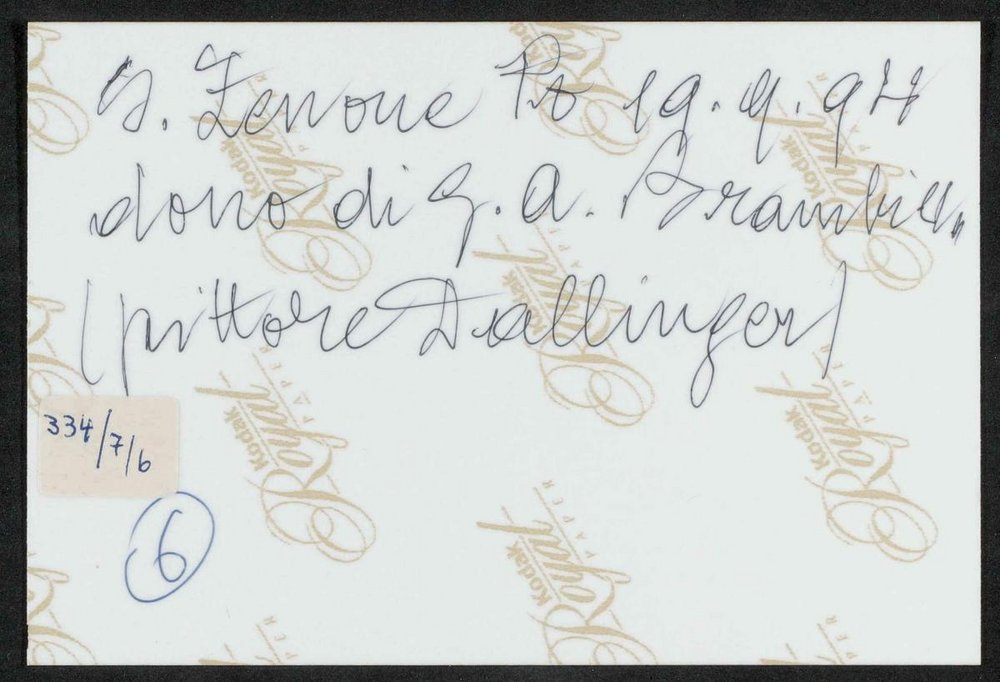 S. Zenone Po 19.4.97
dono di G. A. Brambill.
(pittore Dallinger)
334/7/6
6
Kodak
Royal
PAPER